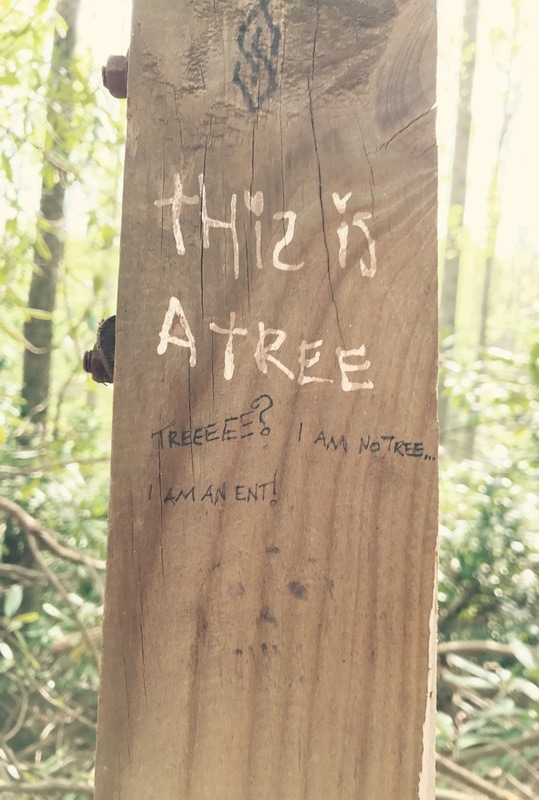 tHiz is
A tREE
TREEEEE? I AM NO TREE...
I AM AN ENT!